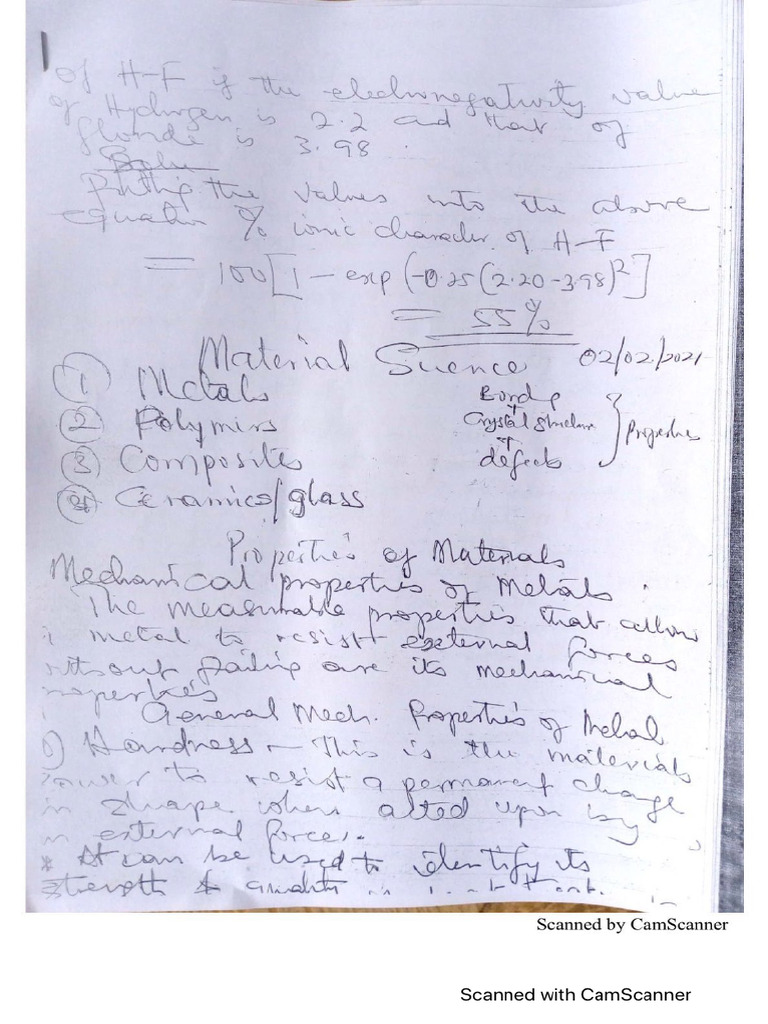 of H-F if the electronegativity value
of Hydrogen is 2.2 and that of
flouride is 3.98.
Putting the values into the above
equation % ionic character of H-F
= 100[1 - exp(-0.25(2.20-3.98)²]
= 55%
Material Science 02/02/2021
① Metals
② Polymers
③ Composites
④ Ceramics/glass
Bonding
Crystal structure
defects
} Properties
Properties of Materials
Mechanical properties of Metals:
The measurable properties that allow
metal to resist external forces
without failing are its mechanical
properties
General Mech. Properties of Metal
Hardness - This is the materials
power to resist a permanent change
in shape when acted upon by
external force.
* It can be used to identify its
strength & quality
Scanned by CamScanner
Scanned with CamScanner